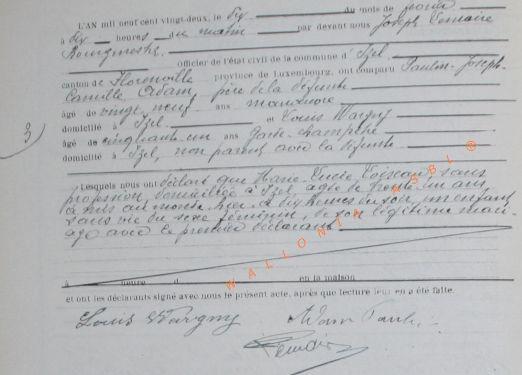 L'AN mil neuf cent vingt-deux, le dix du mois de
à dix heures du matin par devant nous Joseph Lemaire
Bourgmestre
officier de l'état civil de la commune d'Izel,
canton de Florenville province de Luxembourg, ont comparu Paulin-Joseph-
Camille Adam, père de la défunte
âgé de vingt neuf ans manœuvre
domicilié à Izel et Louis Wargny
âgé de cinquante un ans garde-champêtre
domicilié à Izel, non parent avec la défunte
3
Lesquels nous ont déclaré que Marie-Lucie Loiseau, sans
profession, domiciliée à Izel, âgée de trente un ans,
a mis au monde hier à dix heures du soir, un enfant
sans vie du sexe féminin, de son légitime mari-
age avec le premier déclarant
à heure d en la maison
et ont les déclarants signé avec nous le présent acte, après que lecture leur en a été faite.
Louis Wargny Adam Paulin
WALLONIA ASBL ®